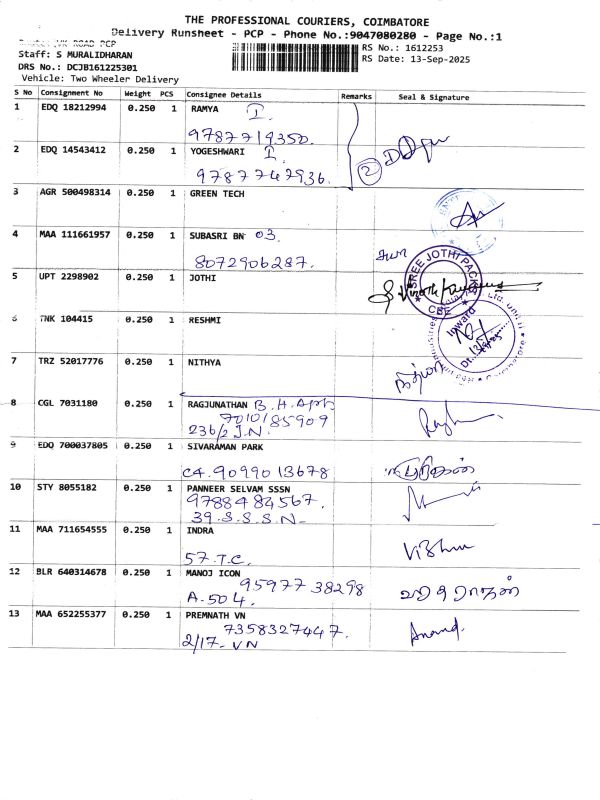 THE PROFESSIONAL COURIERS, COIMBATORE
Delivery Runsheet - PCP - Phone No.:9047080280 - Page No.:1
ROAD PCP
Staff: S MURALIDHARAN
RS No.: 1612253
DRS No.: DCJB161225301
RS Date: 13-Sep-2025
Vehicle: Two Wheeler Delivery
S No Consignment No Weight PCS Consignee Details Remarks Seal & Signature
1 EDQ 18212994 0.250 1 RAMYA I.
9787719350.
2 EDQ 14543412 0.250 1 YOGESHWARI I
9787747936.
2
3 AGR 500498314 0.250 1 GREEN TECH
4 MAA 111661957 0.250 1 SUBASRI BN 03.
8072906287.
5 UPT 2298902 0.250 1 JOTHI
SREE JOTHI PACK
CBE
6 TNK 104415 0.250 1 RESHMI
Inward
7 TRZ 52017776 0.250 1 NITHYA
நித்யா
8 CGL 7031180 0.250 1 RAGJUNATHAN B.H.Aprt
7010185909
236/2 J.N.
9 EDQ 700037805 0.250 1 SIVARAMAN PARK
C4. 9099013678
10 STY 8055182 0.250 1 PANNEER SELVAM SSSN
9788484567.
39.S.S.S.N-
11 MAA 711654555 0.250 1 INDRA
57.T.C.
Vibhu
12 BLR 640314678 0.250 1 MANOJ ICON
9597738298
A-504.
13 MAA 652255377 0.250 1 PREMNATH VN
7358327447.
2/17- VN
Anand.